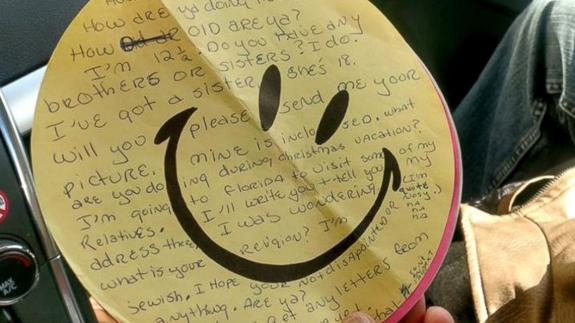 How are ya doing
How OLD are ya?
I'm 12½. Do you have any
brothers or sisters? I do.
I've got a sister she's 18.
Will you please send me your
picture. Mine is inclosed. What
are you doing during Christmas vacation?
I'm going to Florida to visit some of my
Relatives. I'll write you + tell you my
address there. I was wondering (I'm
quite
nosy.)
ha
ha
what is your religion? I'm
Jewish. I hope your not disappointed or
anything. Are ya?
get any letters from
yet.
what